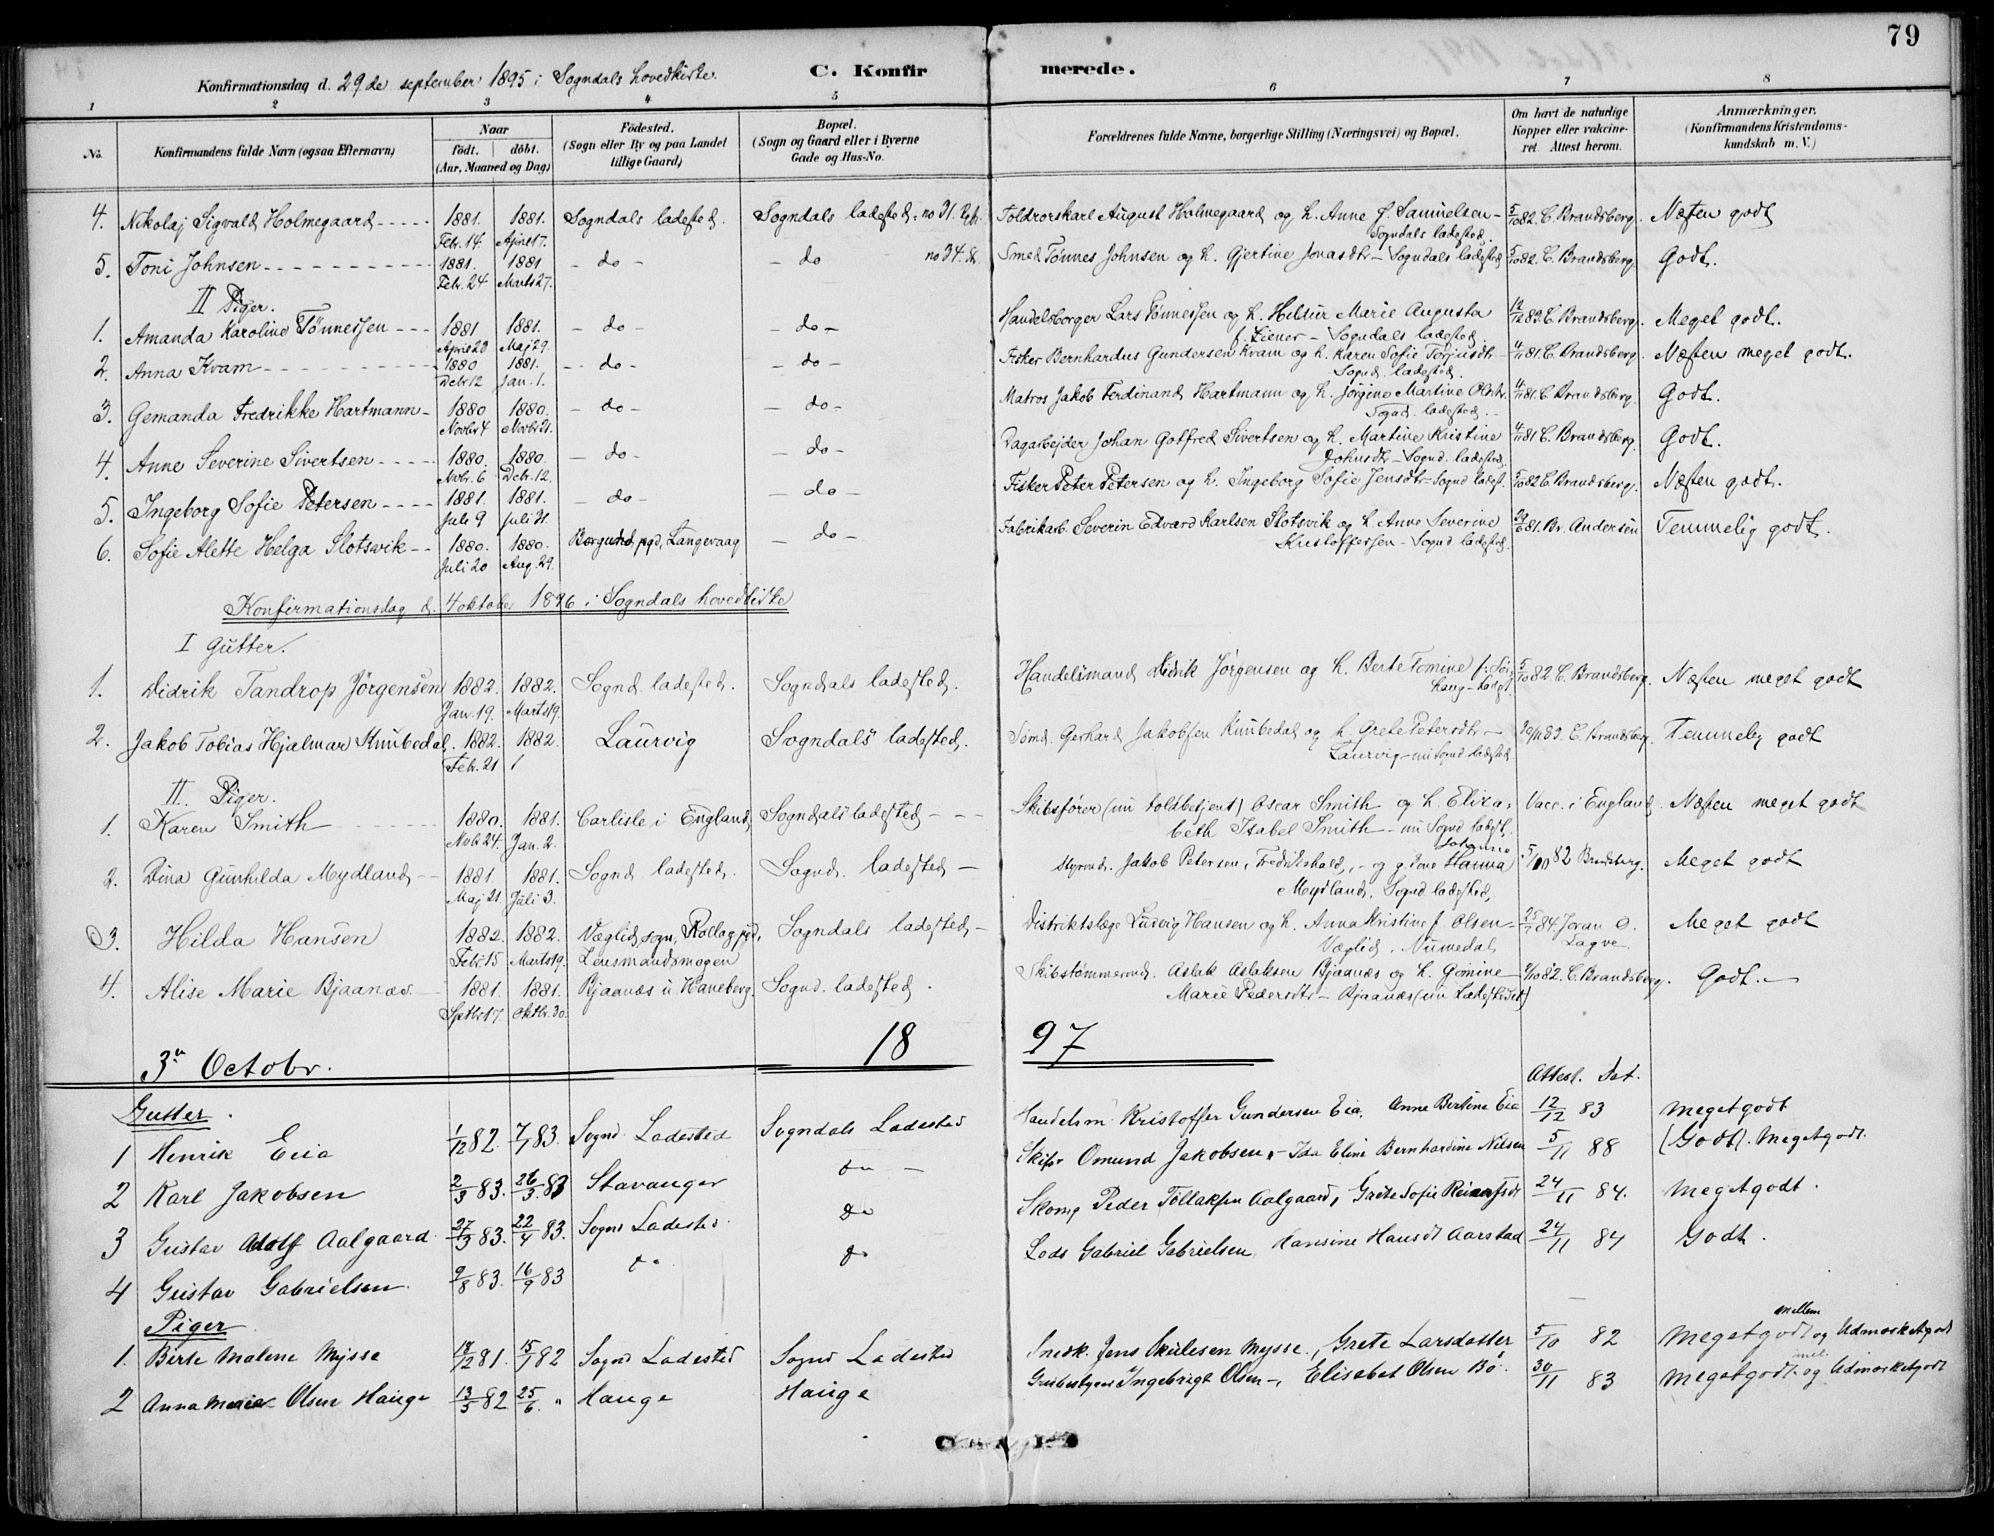 79
Konfirmationsdag d. 29de september 1895 i Sogndals hovedkirke.
C. Konfirmerede.
1 2 3 4 5 6 7 8
No.
Konfirmandens fulde Navn (ogsaa Efternavn)
Naar
födt. döbt.
(Aar, Maaned og Dag)
Födested.
(Sogn eller By og paa Landet
tillige Gaard)
Bopæl.
(Sogn og Gaard eller i Byerne
Gade og Hus-No.
Forældrenes fulde Navne, borgerlige Stilling (Næringsvei) og Bopæl.
Om havt de naturlige
Kopper eller vakcine-
ret. Attest herom.
Anmærkninger.
(Konfirmandens Kristendoms-
kundskab m. V.)
4. Nikolaj Sigvald Holmegaard 1881. 1881. Sogndals ladested. Sogndals ladested. no 31. Toldrorskarl August Holmegaard og h. Anne f. Samuelsen -
Febr. 14. April 17. Sogndals ladested. 5/10 82. C. Brandsberg. Næsten godt
5. Toni Johnsen 1881. 1881 - do - - do no 34. Smed Tönnes Johnsen og h. Gjertine Jonasdtr - Sogndals ladested 5/10 82. C. Brandsberg. Godt.
Febr. 24 Marts 27.
II Piger.
1. Amanda Karoline Tönnessen 1881 1881. - do - - do - Handelsborger Lars Tönnessen og h. Hildur Marie Augusta 12/12 83. C. Brandsberg. Meget godt.
April 20 Maj 29. f. Eiener - Sogndals ladested.
2. Anna Kvam 1880 1881. - do - - do - Fisker Bernhardus Gundersen Kvam og h. Karen Sofie Torjusdtr - 4/11 81. C. Brandsberg. Næsten meget godt.
Debr 12 Jan. 1. Sognd. ladested.
3. Gemanda Fredrikke Hartmann - 1880 1880. - do - - do - Matros Jakob Ferdinand Hartmann og h. Jörgine Martine Olsdtr. 4/11 81. C. Brandsberg. Godt.
Novbr 4 Novbr 21. Sognd. ladested.
4. Anne Severine Sivertsen 1880. 1880. - do - - do - Dagarbejder Johan Gotfred Sivertsen og h. Martine Kristine 4/11 81 C. Brandsberg. Godt.
Nvbr. 6 Debr. 12. Johnsdtr - Sognd. ladested.
5. Ingeborg Sofie Petersen 1881. 1881. - do - - do - Fisker Peter Petersen og h. Ingeborg Sofie Jensdtr - Sognd ladest. 5/10 82 C. Brandsberg. Næsten godt.
Juli 9 Juli 31.
6. Sofie Alette Helga Slotsvik 1880. 1880. Borgund pgd, Langevaag - do - Fabrikarb. Severin Edvard Karlsen Slotsvik og h. Anne Severine 81. Br. Andersen Temmelig godt.
Juli 20 Aug. 29. Kristoffersen - Sognd ladested.
Konfirmationsdag d. 4 oktober 1896 i Sogndals hovedkirke
I Gutter.
1. Didrik Tandrop Jörgensen 1882. 1882. Sognd. ladested. Sogndals ladested. Handelsmand Didrik Jörgensen og h. Berte Tomine f. 5/10 82 C. Brandsberg. Næsten meget godt
Jan. 19. Marts 19.
2. Jakob Tobias Hjalmar Knubedal. 1882. 1882. Laurvig Sogndals ladested. Sömd. Gerhard Jakobsen Knubedal og h. Grete Petersdtr - 83. C. Brandsberg. Temmelig godt
Febr. 21 Laurvig - nu Sognd ladested
II. Piger.
1. Karen Smith 1880. 1881. Carlisle i England, Sogndals ladested - - - Skibsförer (nu toldbetjent) Oscar Smith og h. Eliza- Vacc. i England. Næsten meget godt
Nvbr 24. Jan. 2. beth Isabel Smith - nu Sognd ladest.
2. Dina Gunhilda Mydland 1881. 1881. Sognd. ladested. Sognd. ladested - Styrmd. Jakob Petersen, Fredrikshald, - og Johanne Hanna 5/10 82 Brandsberg. Meget godt
Maj 21. Juli 3. Mydland. Sognd ladested.
3. Hilda Hansen 1882. 1882. Væglid sogn, Rollag pgd, Sogndals ladested - Distriktslæge Ludvig Hansen og h. Anna Kristine f. Olsen - 84. Joran O. Meget godt
Febr. 15 Marts 19. Lensmandsmogen Væglid, Numedal Lagve.
4. Alise Marie Bjaanæs. 1881. 1881. Bjaanæs u Haneberg. Sognd. ladested. Skibstömmermd. Aslak Aslaksen Bjaanæs og h. Gemine 82. C. Brandsberg. Godt. -
Septbr 17. Oktbr. 30. Marie Pedersdtr - Bjaanæs (nu Ladestedet)
3. Octobr. 1897
Attest. Dat.
Gutter.
1 Henrik Eeia 1/12 82. 7/1 83. Sognd. Ladested Sogndals Ladested Handelsm. Kristoffer Gundersen Eia. Anne Bertine Eia 12/12 83 Megetgodt
2 Karl Jakobsen 2/3 83. 26/3 83 Stavanger do - Skifr Omund Jakobsen, Ida Eline Bernhardine Nilsen 5/11 88 (Godt). Megetgodt.
3 Gustav Adolf Aalgaard 27/3 83. 22/4 83. Sogns Ladested do Skomg Peder Tollaksen Aalgaard, Grete Sofie 24/11 84. Megetgodt.
4 Gustav Gabrielsen 9/8 83. 16/9 83 do do Lods Gabriel Gabrielsen, Hansine Hansdt Aarstad 24/11 84 Godt.
Piger
1. Berte Malene Mysse 18/12 81. 15/1 82 Sognd Ladested Sognd Ladested Snedk. Jens Skulesen Mysse., Grete Larsdatter 5/10 82 mellem Megetgodt og Udmærketgodt
2 Anna Marie Olsen Hauge 13/5 82 25/6 " Hauge Hauge Ingebrigt Olsen -, Elisabet Olsen Bö. 30/11 83 Megetgodt mel. og Udmærketgodt